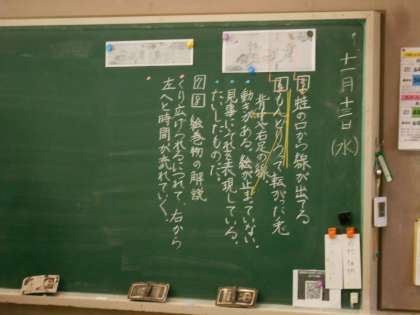 十一月十三日(水)
5 蛙の口から線が出てる
6 もんどりうって転がった兎
背中と右足の線
動きがある、絵が止まっていない。
見事にそれを表現している。
たいしたものだ。
7 8 絵巻物の解説
くり広げられるにつれて、右から
左へと時間が流れていく。